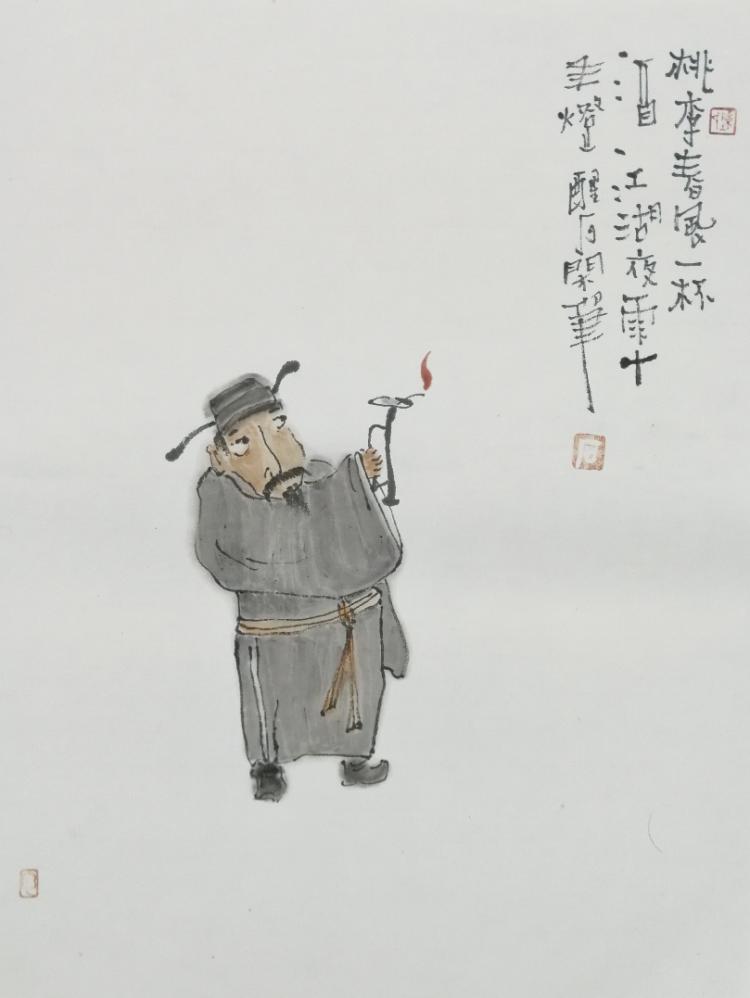 桃李春風一杯
酒江湖夜雨十
年燈醒石閑筆
石